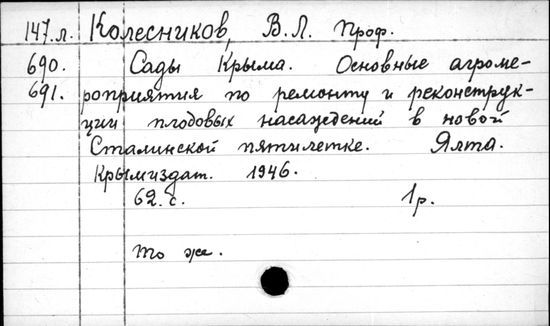 147.л. Колесников, В.Л. Проф.
690. Сады Крыма. Основные агроме-
691. роприятия по ремонту и реконструк-
ции плодовых насаждений в новой
Сталинской пятилетке. Ялта.
Крымиздат. 1946.
62.с. 1р.
То же.